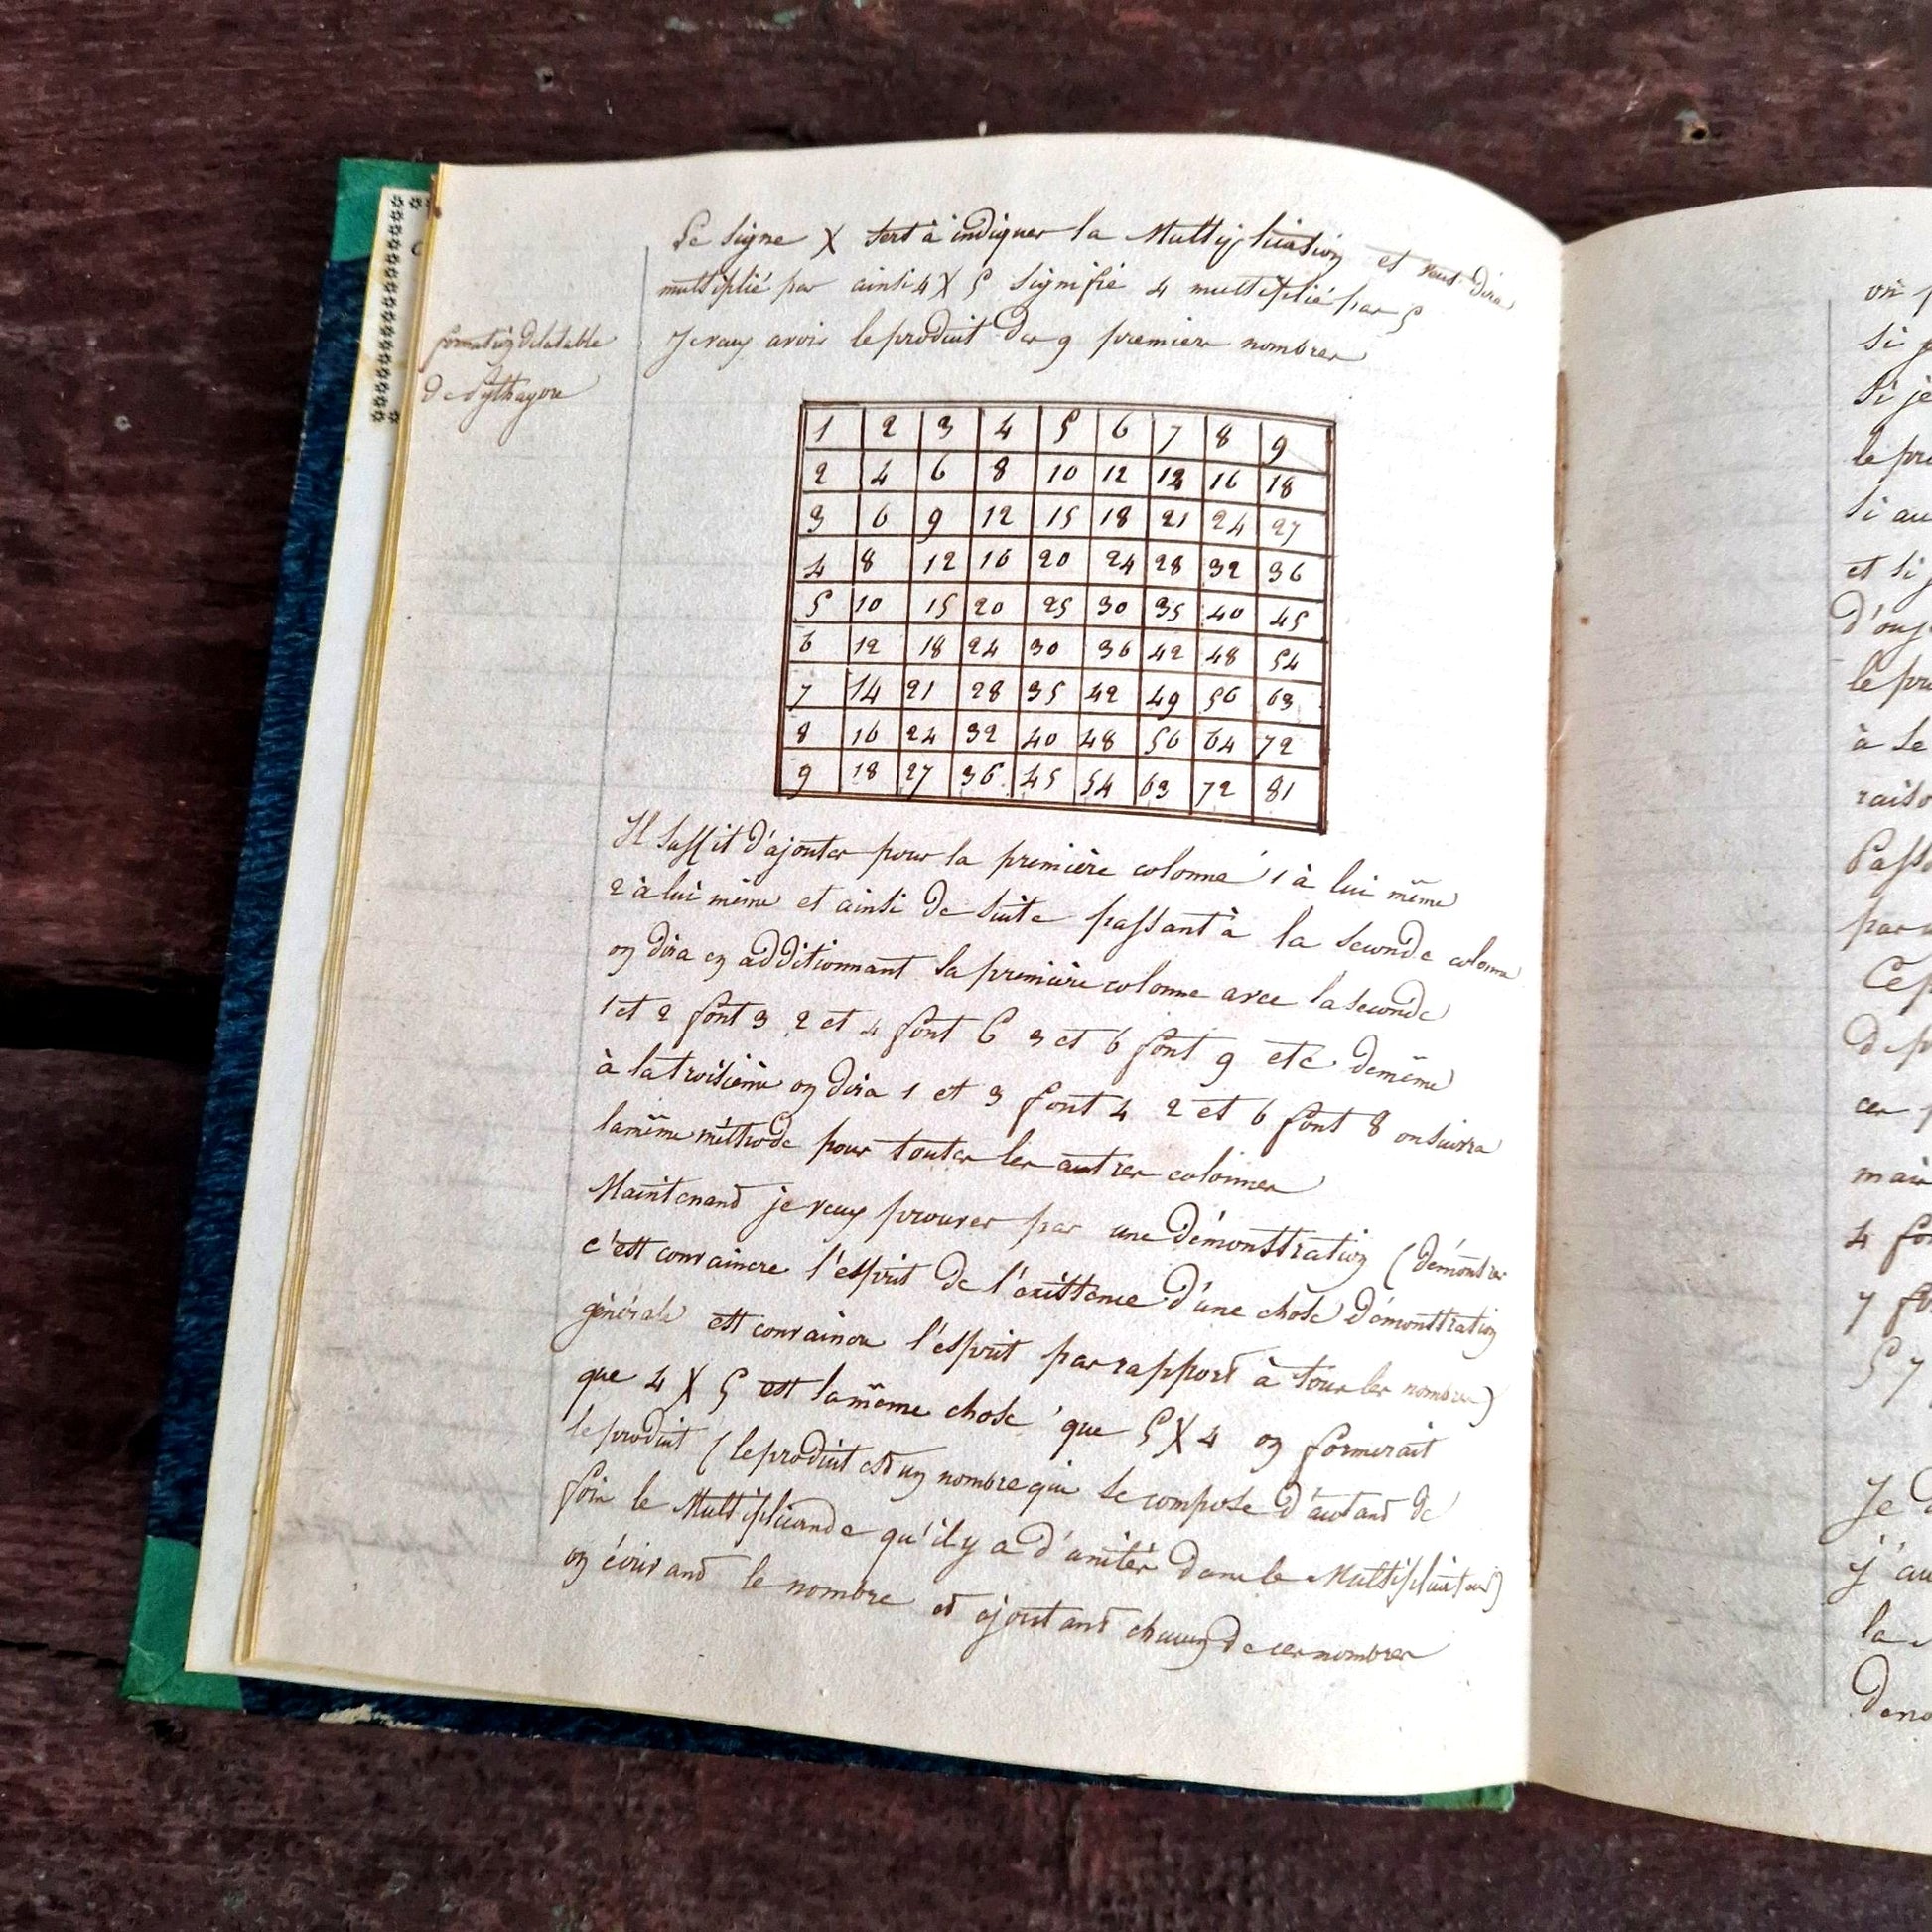 Le signe X sert à indiquer la Multiplication et veut dire
multiplié par ainsi 4 X 5 signifie 4 multiplié par 5
formation de la table
de Pythagore
Je veux avoir le produit des 9 premiers nombres
1 2 3 4 5 6 7 8 9
2 4 6 8 10 12 14 16 18
3 6 9 12 15 18 21 24 27
4 8 12 16 20 24 28 32 36
5 10 15 20 25 30 35 40 45
6 12 18 24 30 36 42 48 54
7 14 21 28 35 42 49 56 63
8 16 24 32 40 48 56 64 72
9 18 27 36 45 54 63 72 81
Il suffit d'ajouter pour la première colonne 1 à lui même
2 à lui même et ainsi de suite passant à la seconde colonne
on dira en additionnant la première colonne avec la seconde
1 et 2 font 3 2 et 4 font 6 3 et 6 font 9 etc de même
à la troisième on dira 1 et 3 font 4 2 et 6 font 8 on suivra
la même méthode pour toutes les autres colonnes
Maintenant je veux prouver par une démonstration (démontrer
c'est convaincre l'esprit de l'existence d'une chose démonstration
générale est convaincre l'esprit par rapport à tous les nombres)
que 4 X 5 est la même chose que 5 X 4 on formerait
le produit (le produit est un nombre qui se compose d'autant de
fois le Multiplicande qu'il y a d'unités dans le Multiplicateur)
en écrivant le nombre et ajoutant chacun de ces nombres
on
si
si je
le pro
si au
et si j
le pro
à se
raiso
Passo
par
mais
4 fo
7 f
5 7
Je
j'au
la